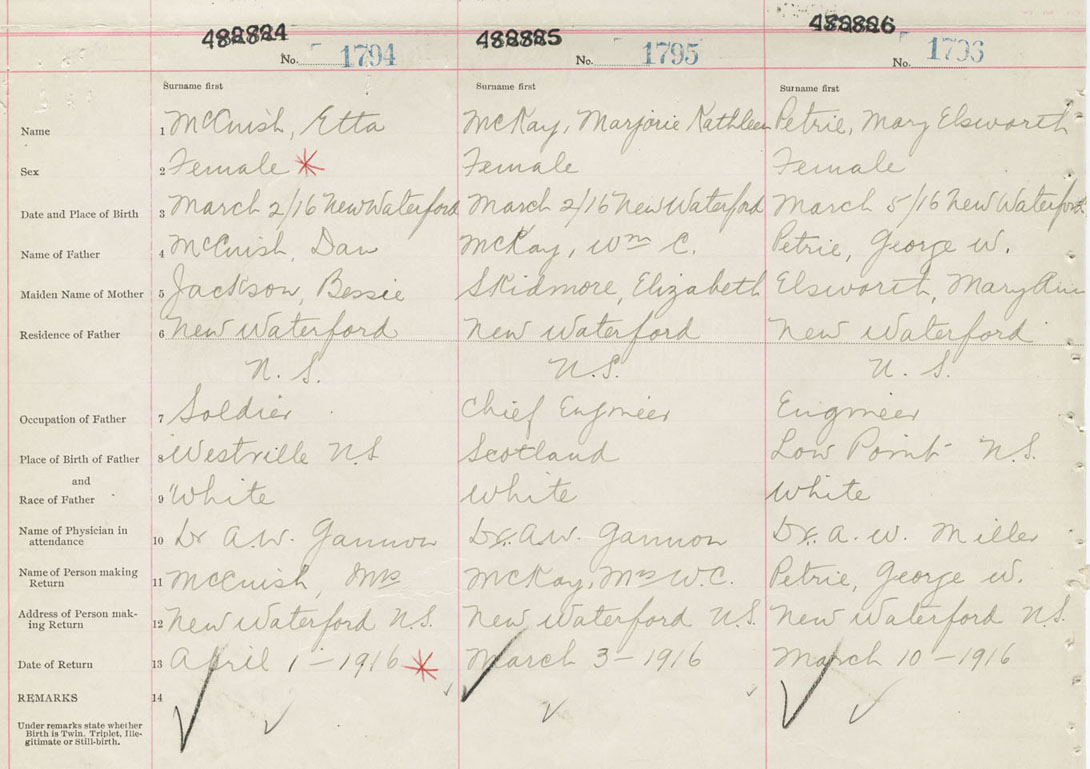 482824 482825 482826
No. 1794 No. 1795 No. 1796
Surname first Surname first Surname first
Name 1 McCuish, Etta McKay, Marjorie Kathleen Petrie, Mary Elsworth
Sex 2 Female * Female Female
Date and Place of Birth 3 March 2/16 New Waterford March 2/16 New Waterford March 5/16 New Waterford
Name of Father 4 McCuish, Dan McKay, Wm C. Petrie, George W.
Maiden Name of Mother 5 Jackson, Bessie Skidmore, Elizabeth Elsworth, Mary Ann
Residence of Father 6 New Waterford New Waterford New Waterford
N. S. N.S. N. S.
Occupation of Father 7 Soldier Chief Engineer Engineer
Place of Birth of Father 8 Westville N S Scotland Low Point N.S.
and
Race of Father 9 White White White
Name of Physician in
attendance 10 Dr A.W. Gannon Dr. A.W. Gannon Dr. A. W. Miller
Name of Person making
Return 11 McCuish, Mrs McKay, Mrs W.C. Petrie, George W.
Address of Person mak-
ing Return 12 New Waterford N.S. New Waterford N.S. New Waterford N.S.
Date of Return 13 April 1 - 1916 * March 3 - 1916 March 10 - 1916
REMARKS 14
Under remarks state whether
Birth is Twin, Triplet, Ille-
gitimate or Still-birth.